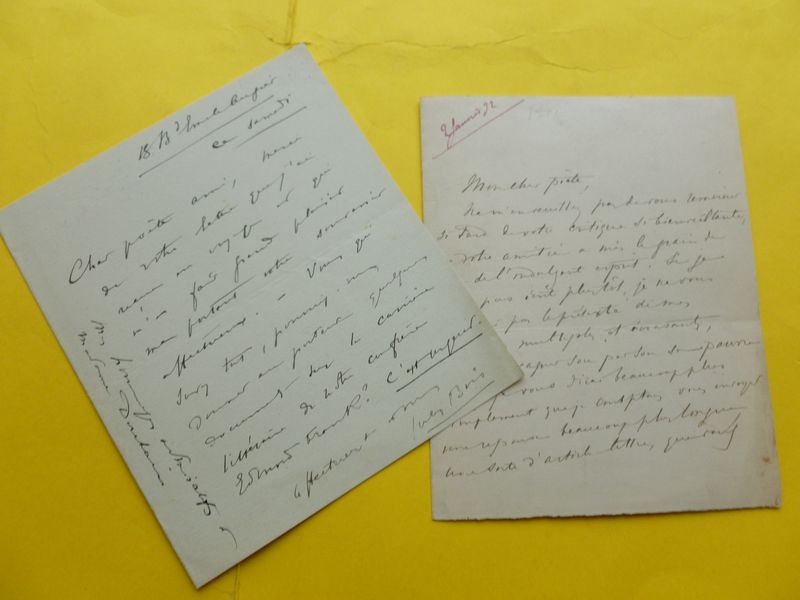 18 Bd Emile Augier
Ce samedi
Cher poète ami, merci
de votre lettre que j'ai
reçue en voyage et qui
m'a fait grand plaisir
me portant votre souvenir
affectueux. – Vous qui
savez tout, pourriez-vous
donner au porteur quelques
documents sur la carrière
littéraire de votre confrère
Edmond Frank? C'est urgent.
affectueux à vous
Jules Bois
Mes hommages
Madame
2 Janvier 92
Mon cher poète,
Ne m'en veuillez pas de vous remercier
si tard de votre critique si bienveillante,
votre amitié a mis le grain de
de l'indulgent esprit. Si je
pas écrit plus tôt, je ne vous
pas le prétexte de mes
multiples et écrasants,
sou par son
vous dirai beaucoup plus
simplement que je comptais vous envoyer
une réponse beaucoup plus longue
une sorte d'article-lettre,